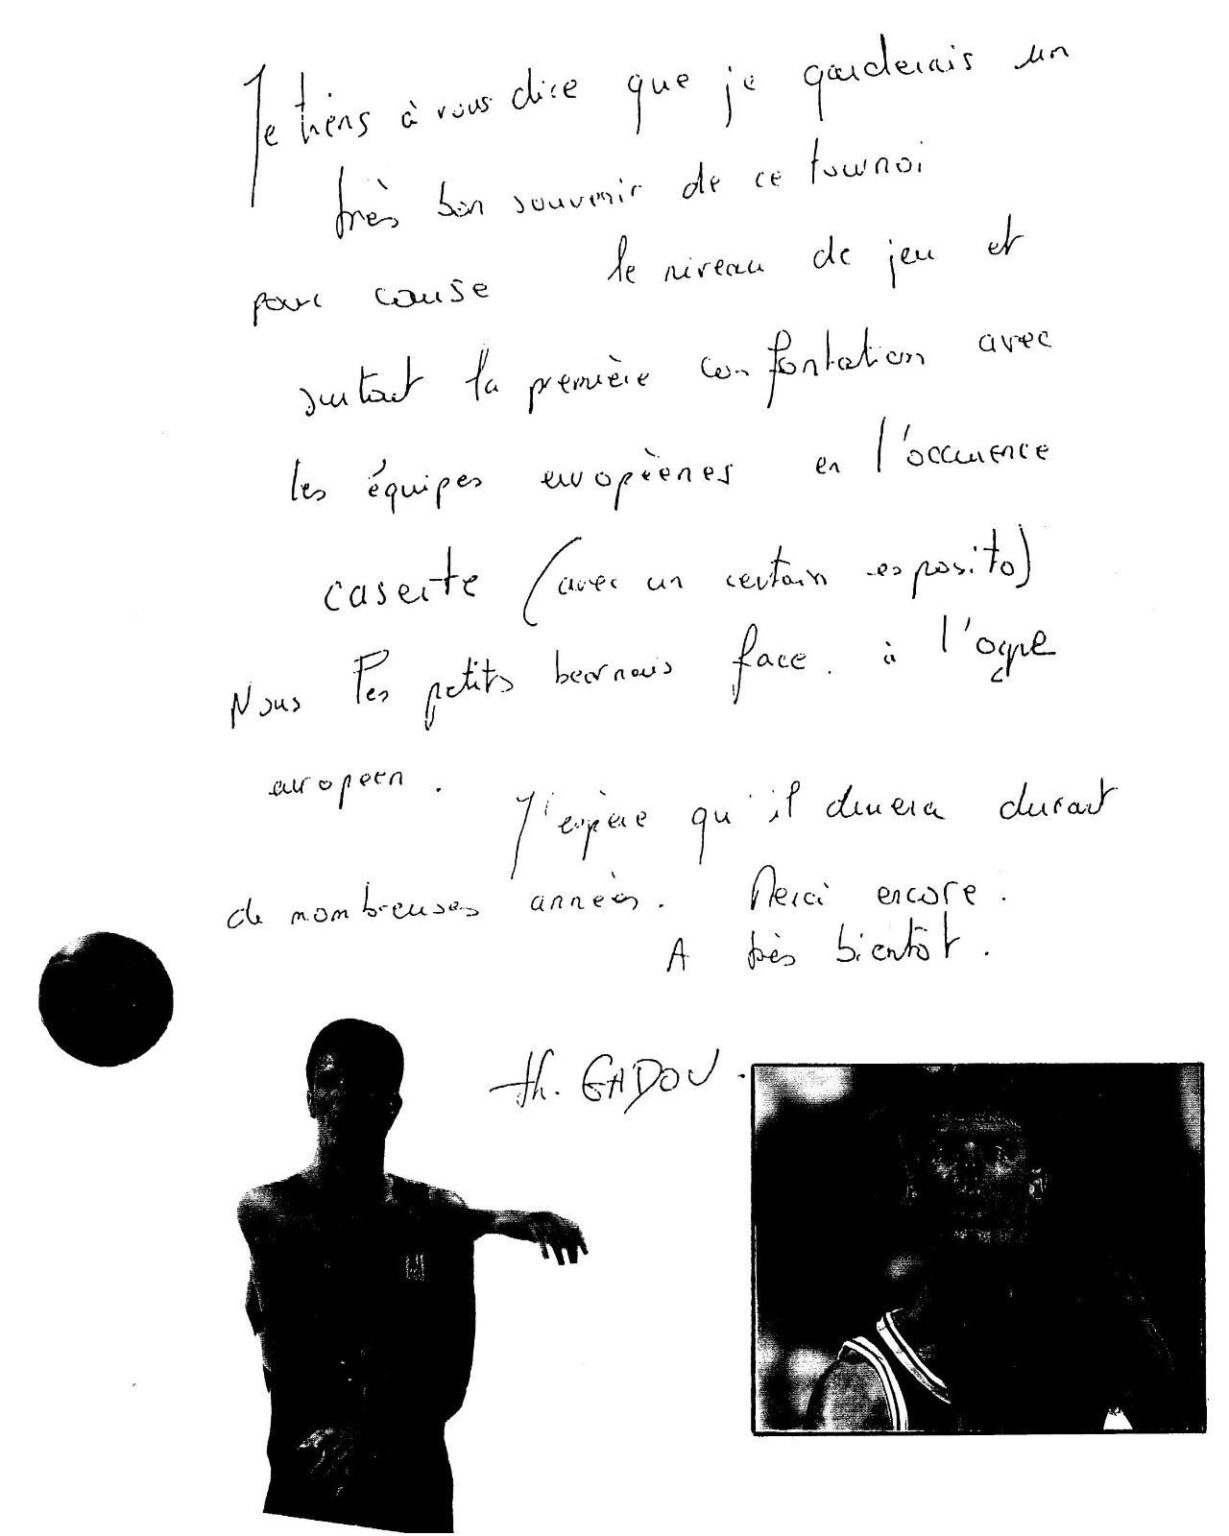 Je tiens à vous dire que je garderais un
très bon souvenir de ce tournoi
pour cause le niveau de jeu et
surtout la première confontation avec
les équipes européenes en l'occurence
caserte (avec un certain esposito)
Nous les petits bearnais face à l'ogre
europeen.
J'espère qu'il durera durant
de nombreuses années. Merci encore.
A très bientôt.
th. GADOU.